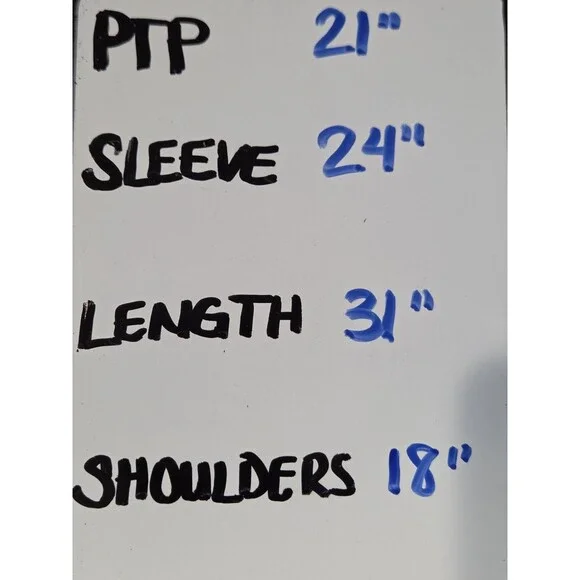 PTP 21"
SLEEVE 24"
LENGTH 31"
SHOULDERS 18"